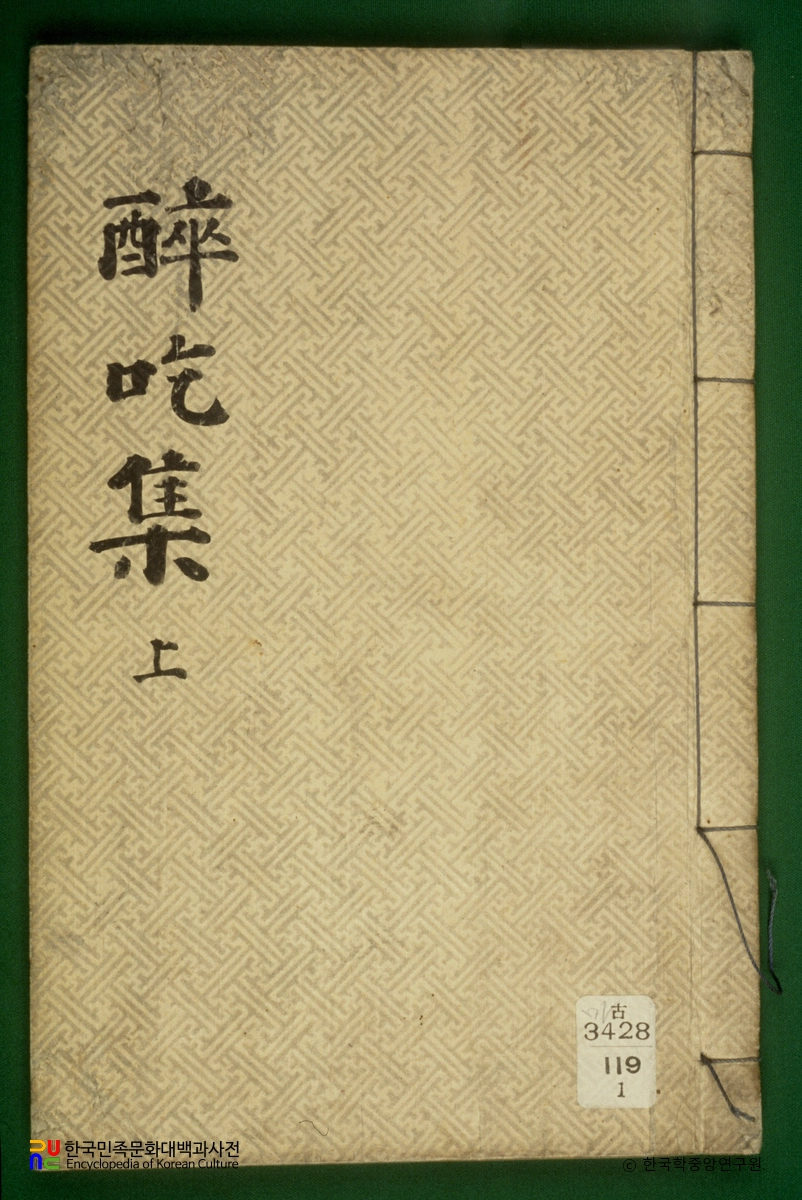 醉吃集 上
古
3428
119
1
한국민족문화대백과사전
Encyclopedia of Korean Culture
© 한국학중앙연구원